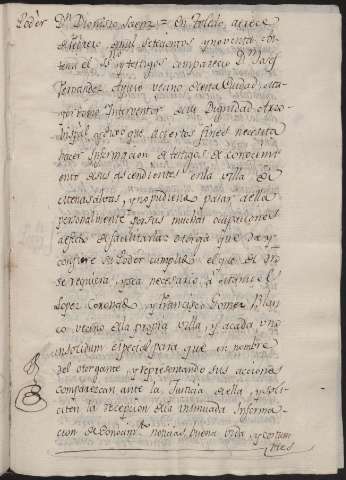 Poder Dn. Dionisio Saenz = En Toledo, a trece
de febrero de mil Setecientos y noventa, an-
te mi el Ssno y testigos comparecio Dn. Josef
Fernandez Aguero vecino de esta Ciudad,
por como Interventor de la Dignidad Arzo-
bispal, y dixo que a ciertos fines necesita
hacer Informacion de testigos de conocimi-
ento de sus ascendientes en la villa de
y no pudiendo pasar a ella
personalmente por sus muchas ocupaciones
a efecto de facilitarla: otorga que da y
confiere su Poder cumplido el que de dro
se requiera, y sea necesario, a
Lopez Coronado, y Francisco Gomez Blan-
co vecino de la propia villa, y a cada uno
insolidum especial para que en nombre
del otorgante, y representando sus acciones
comparezcan ante la Justicia de ella, y soli-
citen la recepcion de la insinuada Informa-
cion de conocimto. noticias, buena vida, y costum-
bres